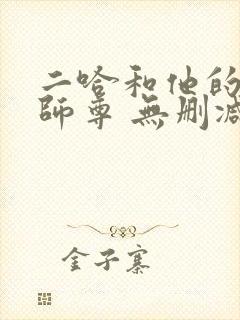 二哈和他的
師尊 無刪減
金子寨